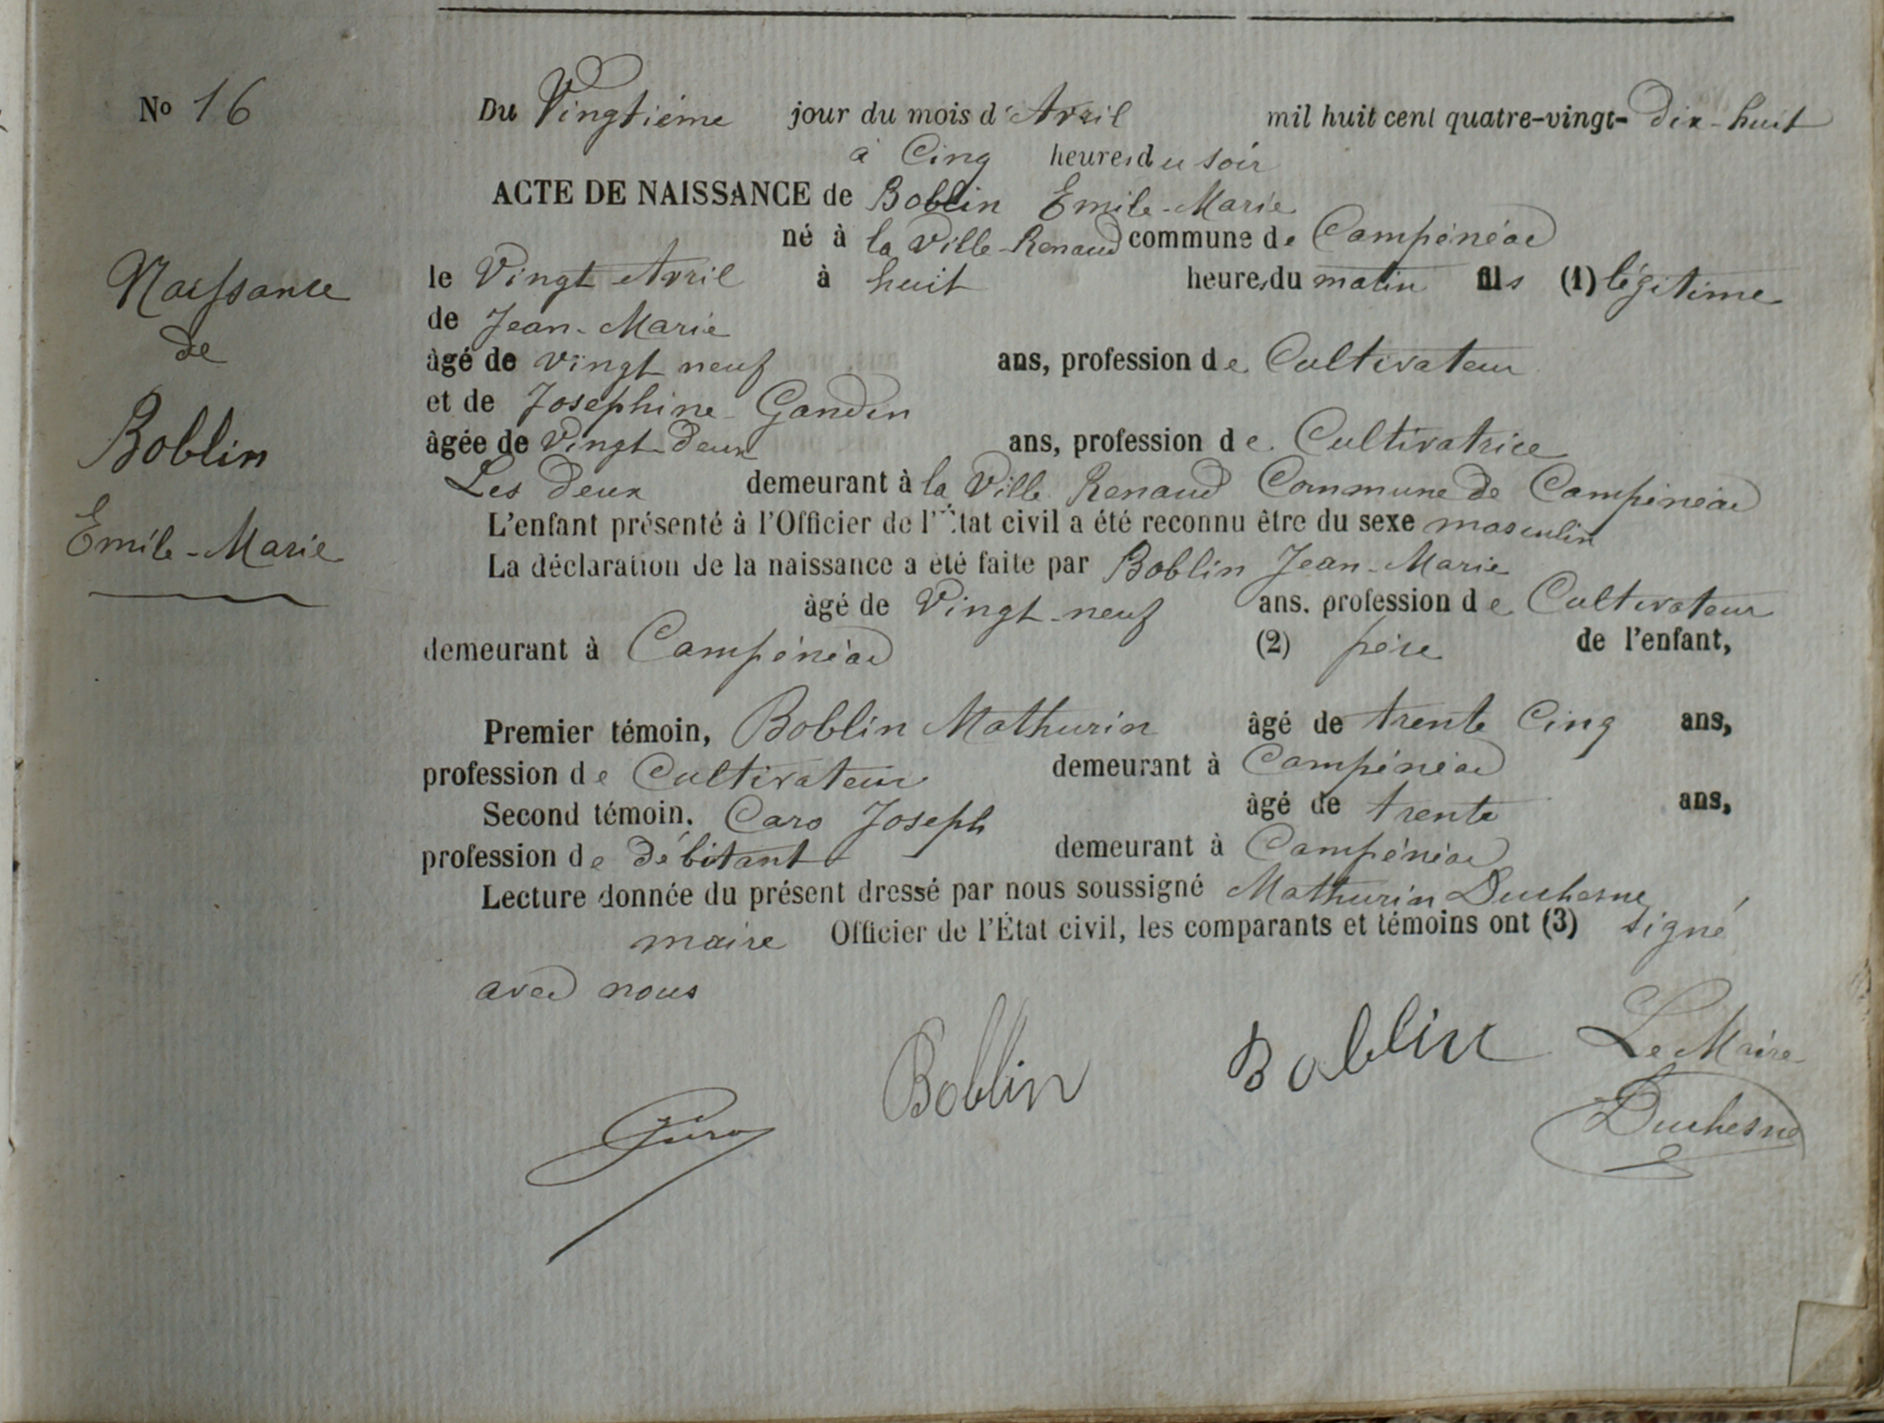 No 16
Naissance
de
Boblin
Emile-Marie
Du Vingtième jour du mois d'Avril mil huit cent quatre-vingt-dix-huit
à Cinq heures du soir
ACTE DE NAISSANCE de Boblin Emile-Marie
né à la Ville-Renaud commune de Campénéac
le Vingt Avril à huit heures du matin fils (1) légitime
de Jean-Marie
âgé de vingt neuf ans, profession de Cultivateur
et de Josephine Gandin
âgée de Vingt-Deux ans, profession de Cultivatrice
Les deux demeurant à la Ville Renaud Commune de Campénéac
L'enfant présenté à l'Officier de l'État civil a été reconnu être du sexe masculin
La déclaration de la naissance a été faite par Boblin Jean-Marie
âgé de Vingt-neuf ans, profession de Cultivateur
demeurant à Campénéac (2) père de l'enfant,
Premier témoin, Boblin Mathurin âgé de trente Cinq ans,
profession de Cultivateur demeurant à Campénéac
Second témoin, Caro Joseph âgé de trente ans,
profession de débitant demeurant à Campénéac
Lecture donnée du présent dressé par nous soussigné Mathurin Duchesne
maire Officier de l'État civil, les comparants et témoins ont (3) signé
avec nous
Boblin Boblin Le Maire
Duchesne